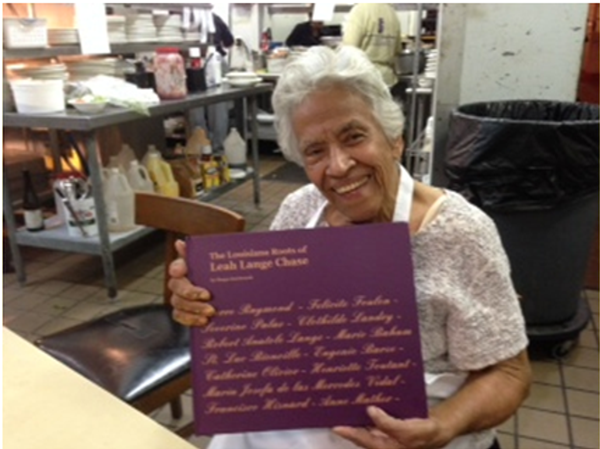 The Louisiana Roots of
Leah Lange Chase
Raymond - Felicite Foulon -
Severine Palao - Clothilde Landry -
Robert Anatole Lange - Marie Baham
St. Luc Bienville - Eugenie Baree -
Catherine Olivier - Henriette Toutant -
Maria Josefa de las Mercedes Vidal -
Francisco Hisnard - Anne Mather -